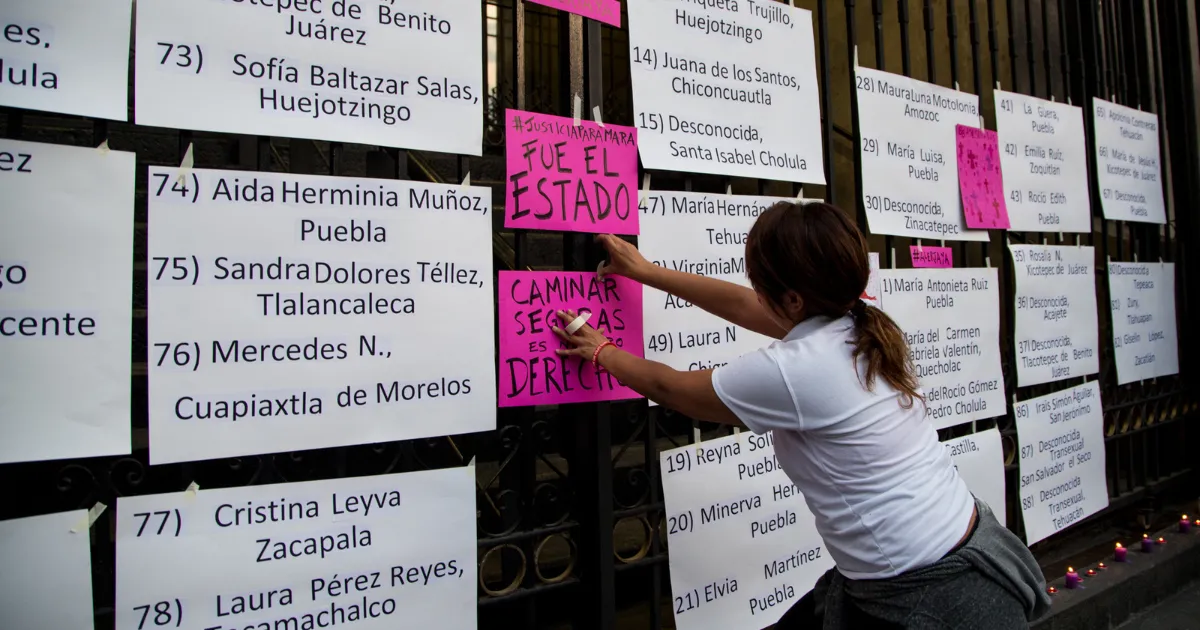 es,
lula
tepec de Benito
Juárez
73) Sofía Baltazar Salas,
Huejotzingo
ez
go
cente
74) Aida Herminia Muñoz,
Puebla
75) Sandra Dolores Téllez,
Tlalancaleca
76) Mercedes N.,
Cuapiaxtla de Morelos
77) Cristina Leyva
Zacapala
78) Laura Pérez Reyes,
Tecamachalco
#JUSTICIAPARAMARA
FUE EL
ESTADO
CAMINAR
SEG AS
ES
DERECHO
Trujillo,
Huejotzingo
14) Juana de los Santos,
Chiconcuautla
15) Desconocida,
Santa Isabel Cholula
47) María Hernán
Tehu
Virginia M
Aca
49) Laura N
Chign
19) Reyna Soli
Puebla
20) Minerva Her
Puebla
21) Elvia Martínez
Puebla
28) Maura Luna Motolonia,
Amozoc
29) María Luisa,
Puebla
30) Desconocida,
Zinacatepec
#ALERTAYA
1) María Antonieta Ruiz
Puebla
María del Carmen
abriela Valentín,
Quecholac
del Rocío Gómez
Pedro Cholula
Castilla,
41) La Güera,
Puebla
42) Emilia Ruiz,
Zoquitlán
43) Rocío Edith
Puebla
35) Rosalía N.
Xicotepec de Juárez
36) Desconocida,
Acajete
37) Desconocida,
Tlacotepec de Benito
Juárez
86) Irais Simón Aguilar,
San Jerónimo
87) Desconocida
Transexual
San Salvador el Seco
88) Desconocida
Transexual,
Tehuacán
65) Apolonia Contreras
Tehuacán
66) María de Jesús H.
Tehuacán
67) Desconocida,
Puebla
80) Desconocida,
Tepeaca
Zury,
Tlahuapan
Giselin López,
Zacatlán